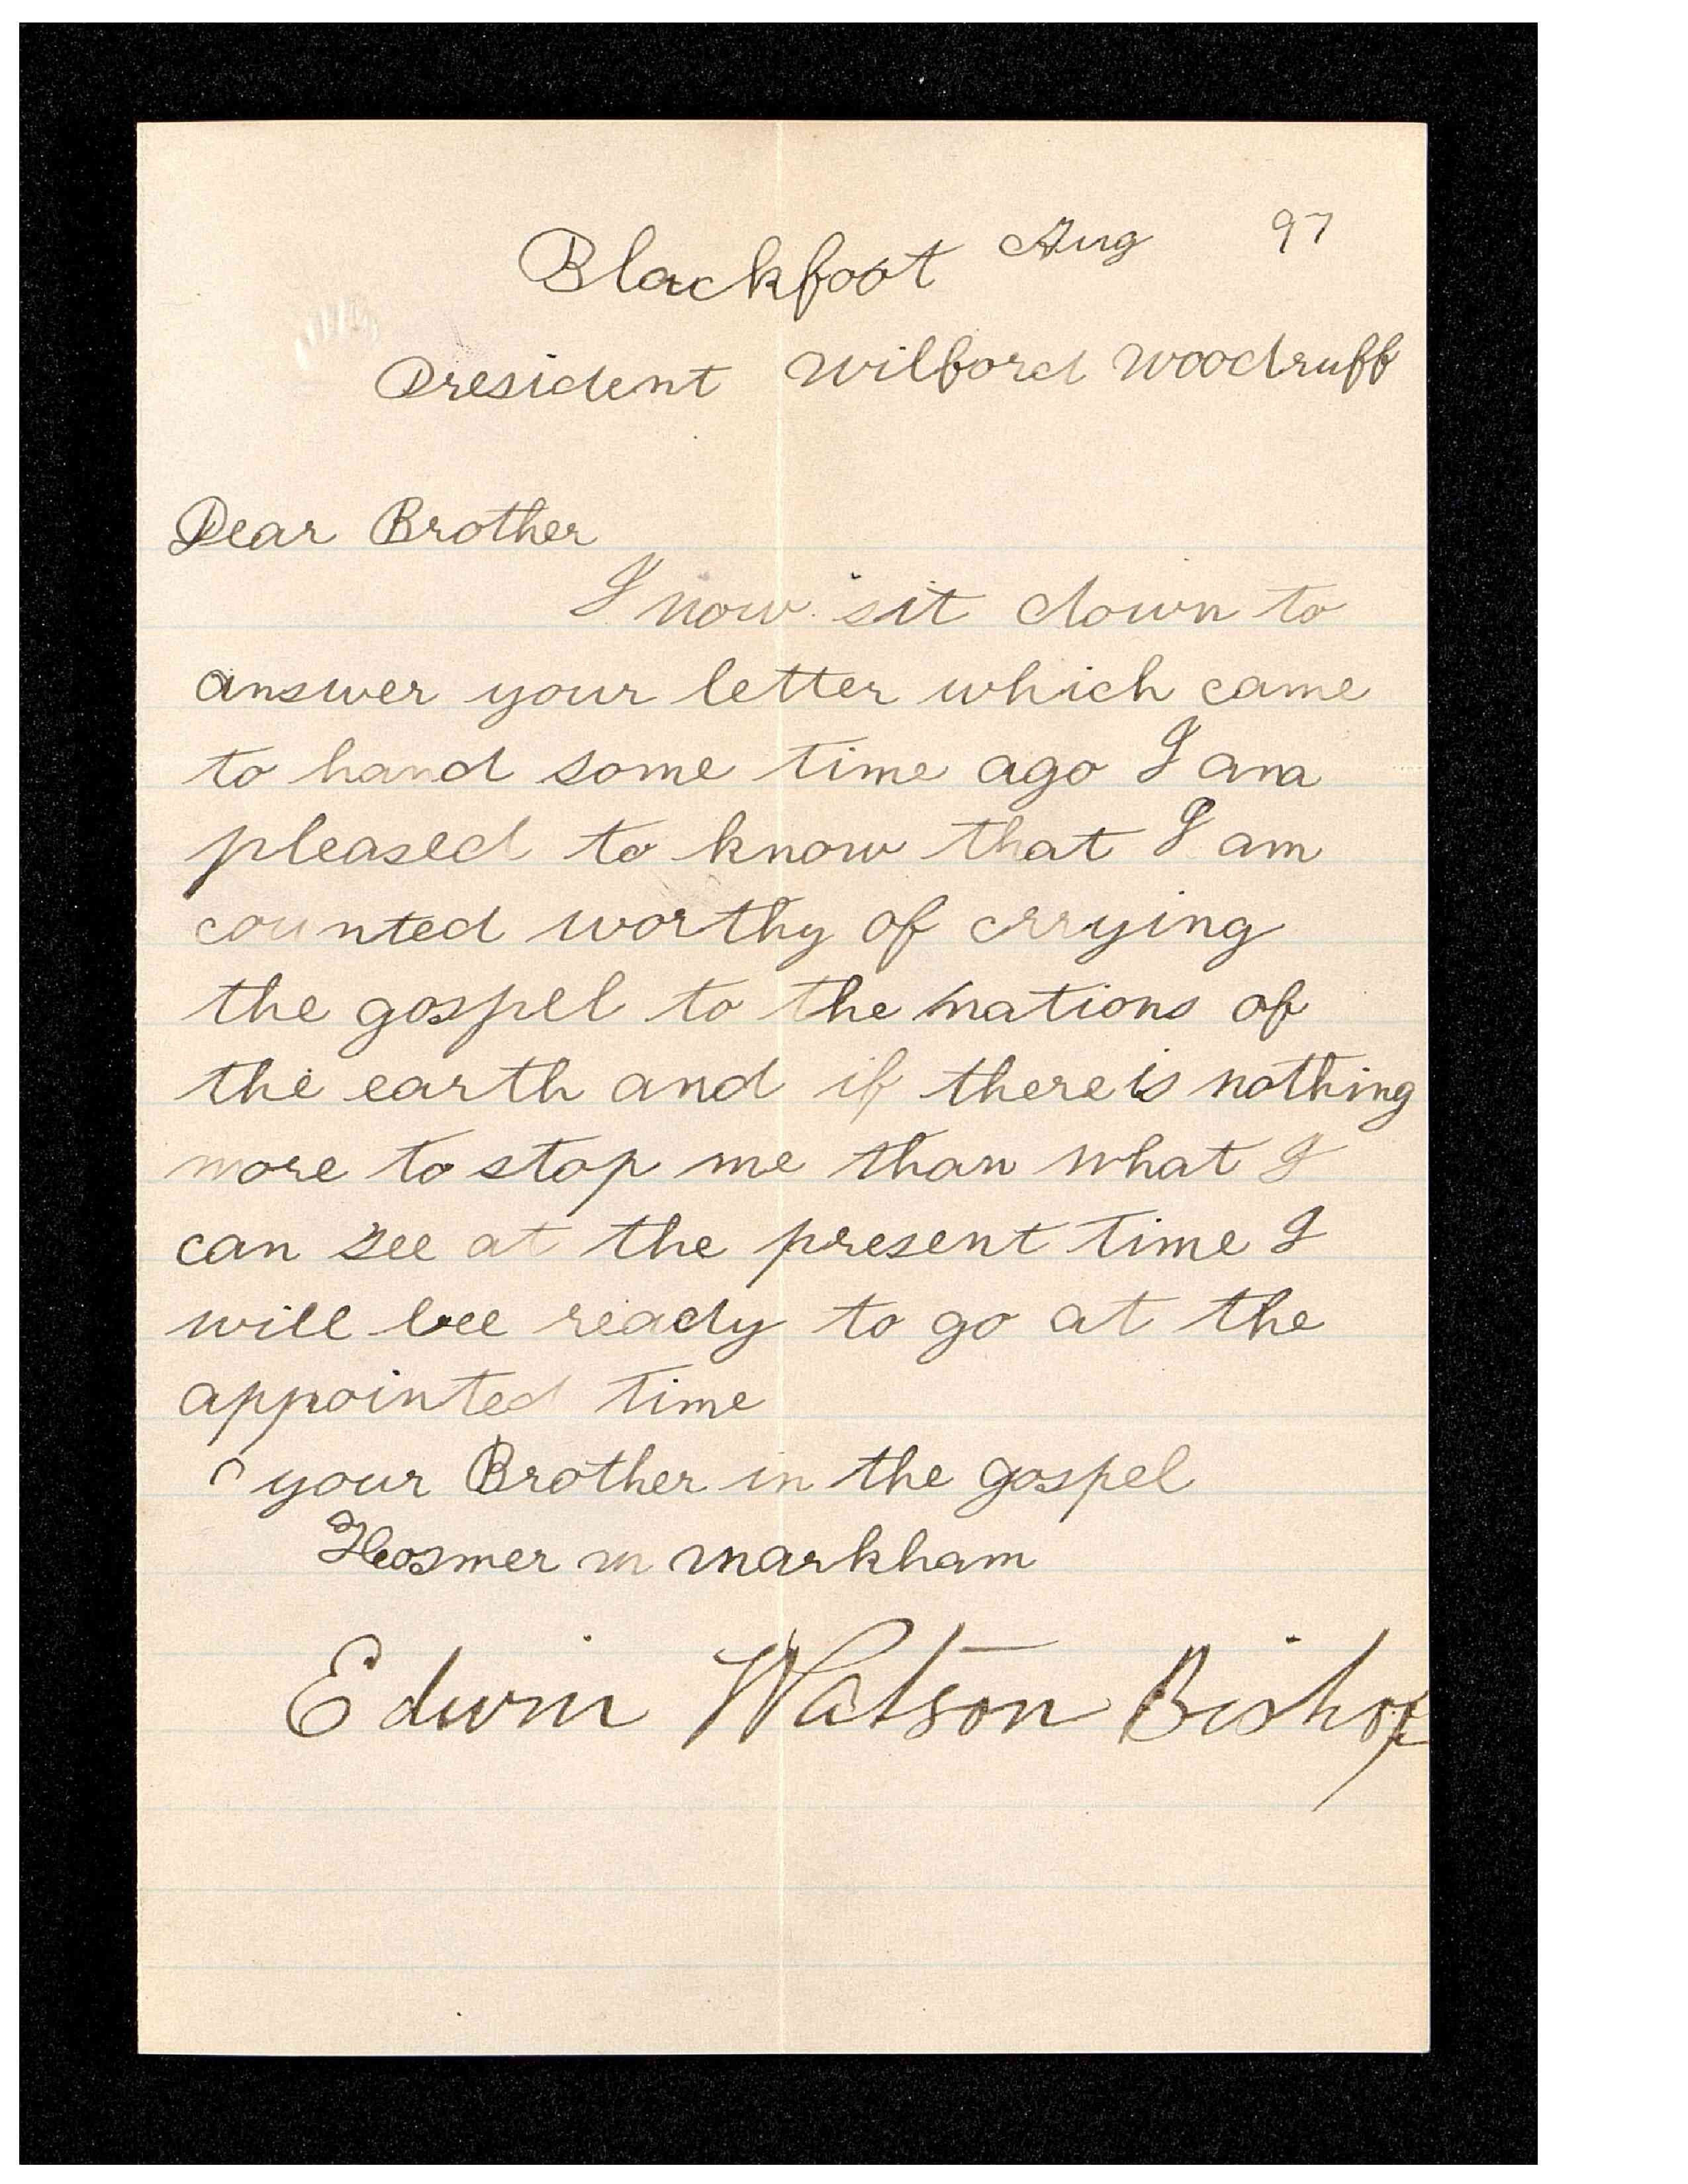 Blackfoot Aug 97
President Wilford Woodruff
Dear Brother
I now sit down to
answer your letter which came
to hand some time ago I am
pleased to know that I am
counted worthy of crrying
the gospel to the nations of
the earth and if there is nothing
more to stop me than what I
can see at the present time I
will bee ready to go at the
appointed time
your Brother in the gospel
Hosmer m markham
Edwin Watson Bishop